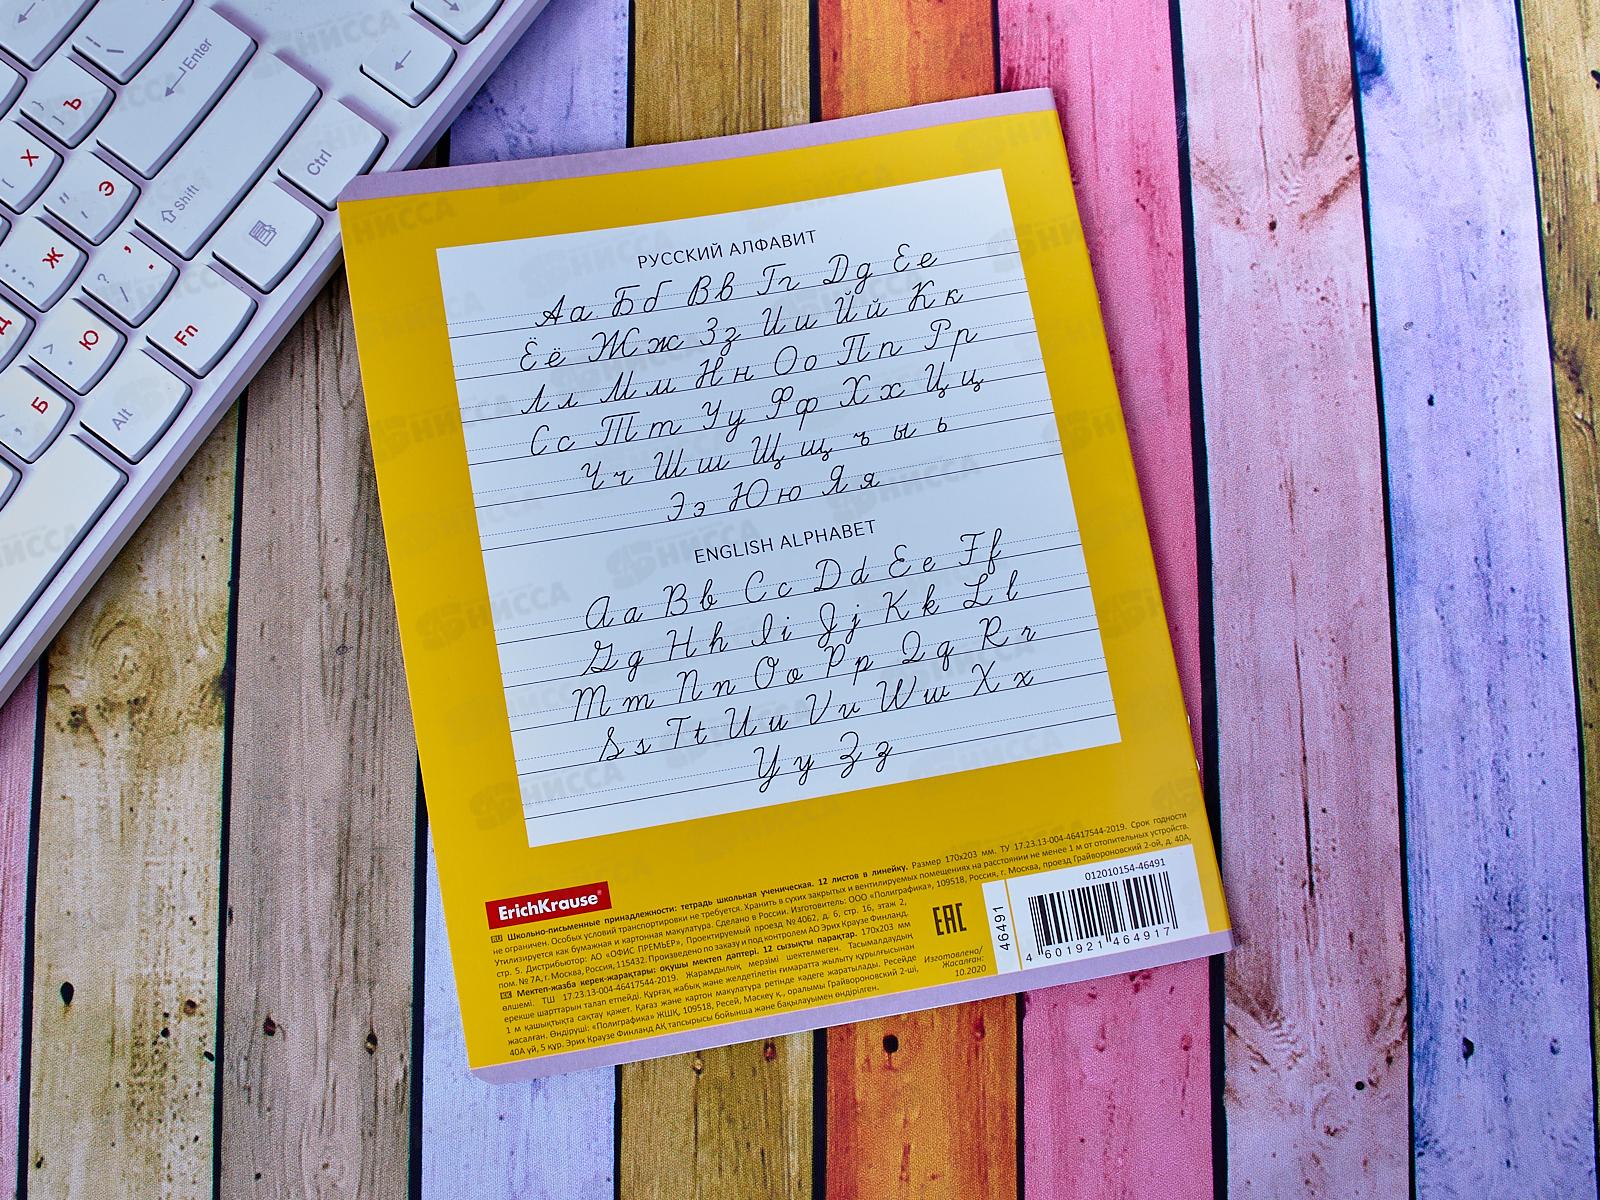 Enter
Ъ
Х
Э
Shift
Ctrl
Ж
Д
Ю
Fn
Б
Alt
РУССКИЙ АЛФАВИТ
Аа Бб Вв Гг Дд Ее
Ёё Жж Зз Ии Йй Кк
Лл Мм Нн Оо Пп Рр
Сс Тт Уу Фф Хх Цц
Чч Шш Щщ ъ ы ь
Ээ Юю Яя
ENGLISH ALPHABET
Aa Bb Cc Dd Ee Ff
Gg Hh Ii Jj Kk Ll
Mm Nn Oo Pp Qq Rr
Ss Tt Uu Vv Ww Xx
Yy Zz
ErichKrause®
RU Школьно-письменные принадлежности: тетрадь школьная ученическая. 12 листов в линейку. Размер 170х203 мм. ТУ 17.23.13-004-46417544-2019. Срок годности
не ограничен. Особых условий транспортировки не требуется. Хранить в сухих закрытых и вентилируемых помещениях на расстоянии не менее 1 м от отопительных устройств.
Утилизируется как бумажная и картонная макулатура. Сделано в России. Изготовитель: ООО «Полиграфика», 109518, Россия, г. Москва, проезд Грайвороновский 2-ой, д. 40А,
стр. 5. Дистрибьютор: АО «ОФИС ПРЕМЬЕР», Проектируемый проезд № 4062, д. 6, стр. 16, этаж 2,
пом. № 7А, г. Москва, Россия, 115432. Произведено по заказу и под контролем АО Эрих Краузе Финланд.
KK Мектеп-жазба керек-жарақтары: оқушы мектеп дәптері. 12 сызықты парақтар. 170х203 мм
өлшемі. ТШ 17.23.13-004-46417544-2019. Жарамдылық мерзімі шектелмеген. Тасымалдаудың
ерекше шарттарын талап етпейді. Құрғақ жабық және желдетілетін ғимаратта жылыту құрылғысынан
1 м қашықтықта сақтау қажет. Қағаз және картон макулатура ретінде кәдеге жаратылады. Ресейде
жасалған. Өндіруші: «Полиграфика» ЖШҚ, 109518, Ресей, Мәскеу қ., оралымы Грайвороновский 2-ші,
40А үй, 5 құр. Эрих Краузе Финланд АҚ тапсырысы бойынша және бақылауымен өндірілген.
EAC
Изготовлено/
Жасалған:
10.2020
46491
012010154-46491
4 601921 464917